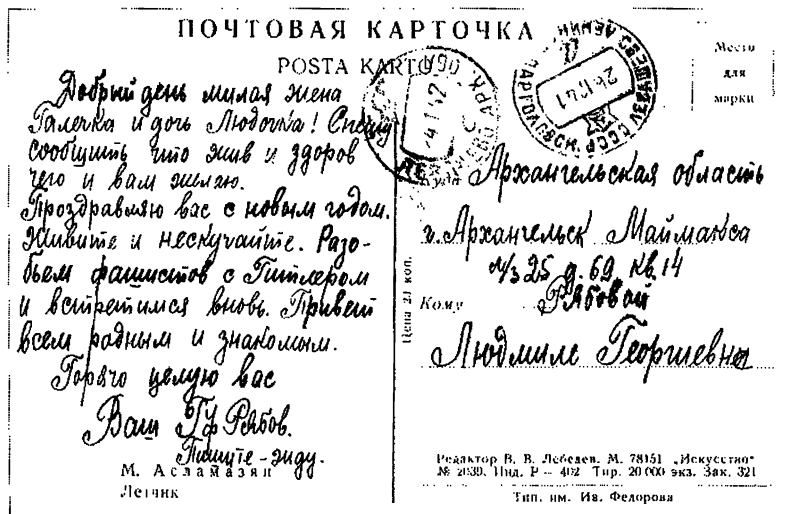 ПОЧТОВАЯ КАРТОЧКА
POSTA KARTO
Место
для
марки
Добрый день милая жена
Галечка и дочь Людочка! Спешу
сообщить что жив и здоров
чего и вам желаю.
Проздравляю вас с новым годом.
Живите и нескучайте. Разо-
бьем фашистов с Гитлером
и встретимся вновь. Привет
всем родным и знакомым.
Горячо целую вас
Ваш Рябов.
Пишите-жду.
М. Асламазян
Летчик
Цена 20 коп.
Куда Архангельская область
г. Архангельск Маймакса
25 д. 69 кв. 14
Кому Рябовой
Людмиле Георгиевне
Редактор В. В. Лебедев. М. 78151 „Искусство"
№ 2039. Инд. Р — 402 Тир. 20 000 экз. Зак. 321
Тип. им. Ив. Федорова